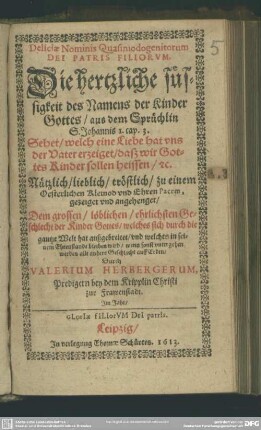 5
Deliciæ Nominis Quasimodogenitorum
DEI PATRIS FILIORVM.
Die hertzliche süs-
sigkeit des Namens der Kinder
Gottes / aus dem Sprüchlin
S. Johannis 1. cap. 3.
Sehet / welch eine Liebe hat vns
der Vater erzeiget / daß wir Got-
tes Kinder sollen heissen / ec.
Nützlich / lieblich / tröstlich / zu einem
Oesterlichen Kleinod vnd Ehren
gezeiget vnd angehenget /
Dem grossen / löblichen / ehrlichsten Ge-
schlecht der Kinder Gottes / welches sich durch die
gantze Welt hat außgebreitet / vnd welches in sei-
nem Ehrenstande bleiben wird / wenn sonst
werden alle andere Geschlecht auff Erden /
Durch
VALERIUM HERBERGERUM,
Predigern bey dem Kripplin Christi
zur Frawenstadt.
Im Jahr /
gLorIa fILIorVM DeI patrIs.
Leipzig /
In verlegung Thomæ Schürers. 1613.